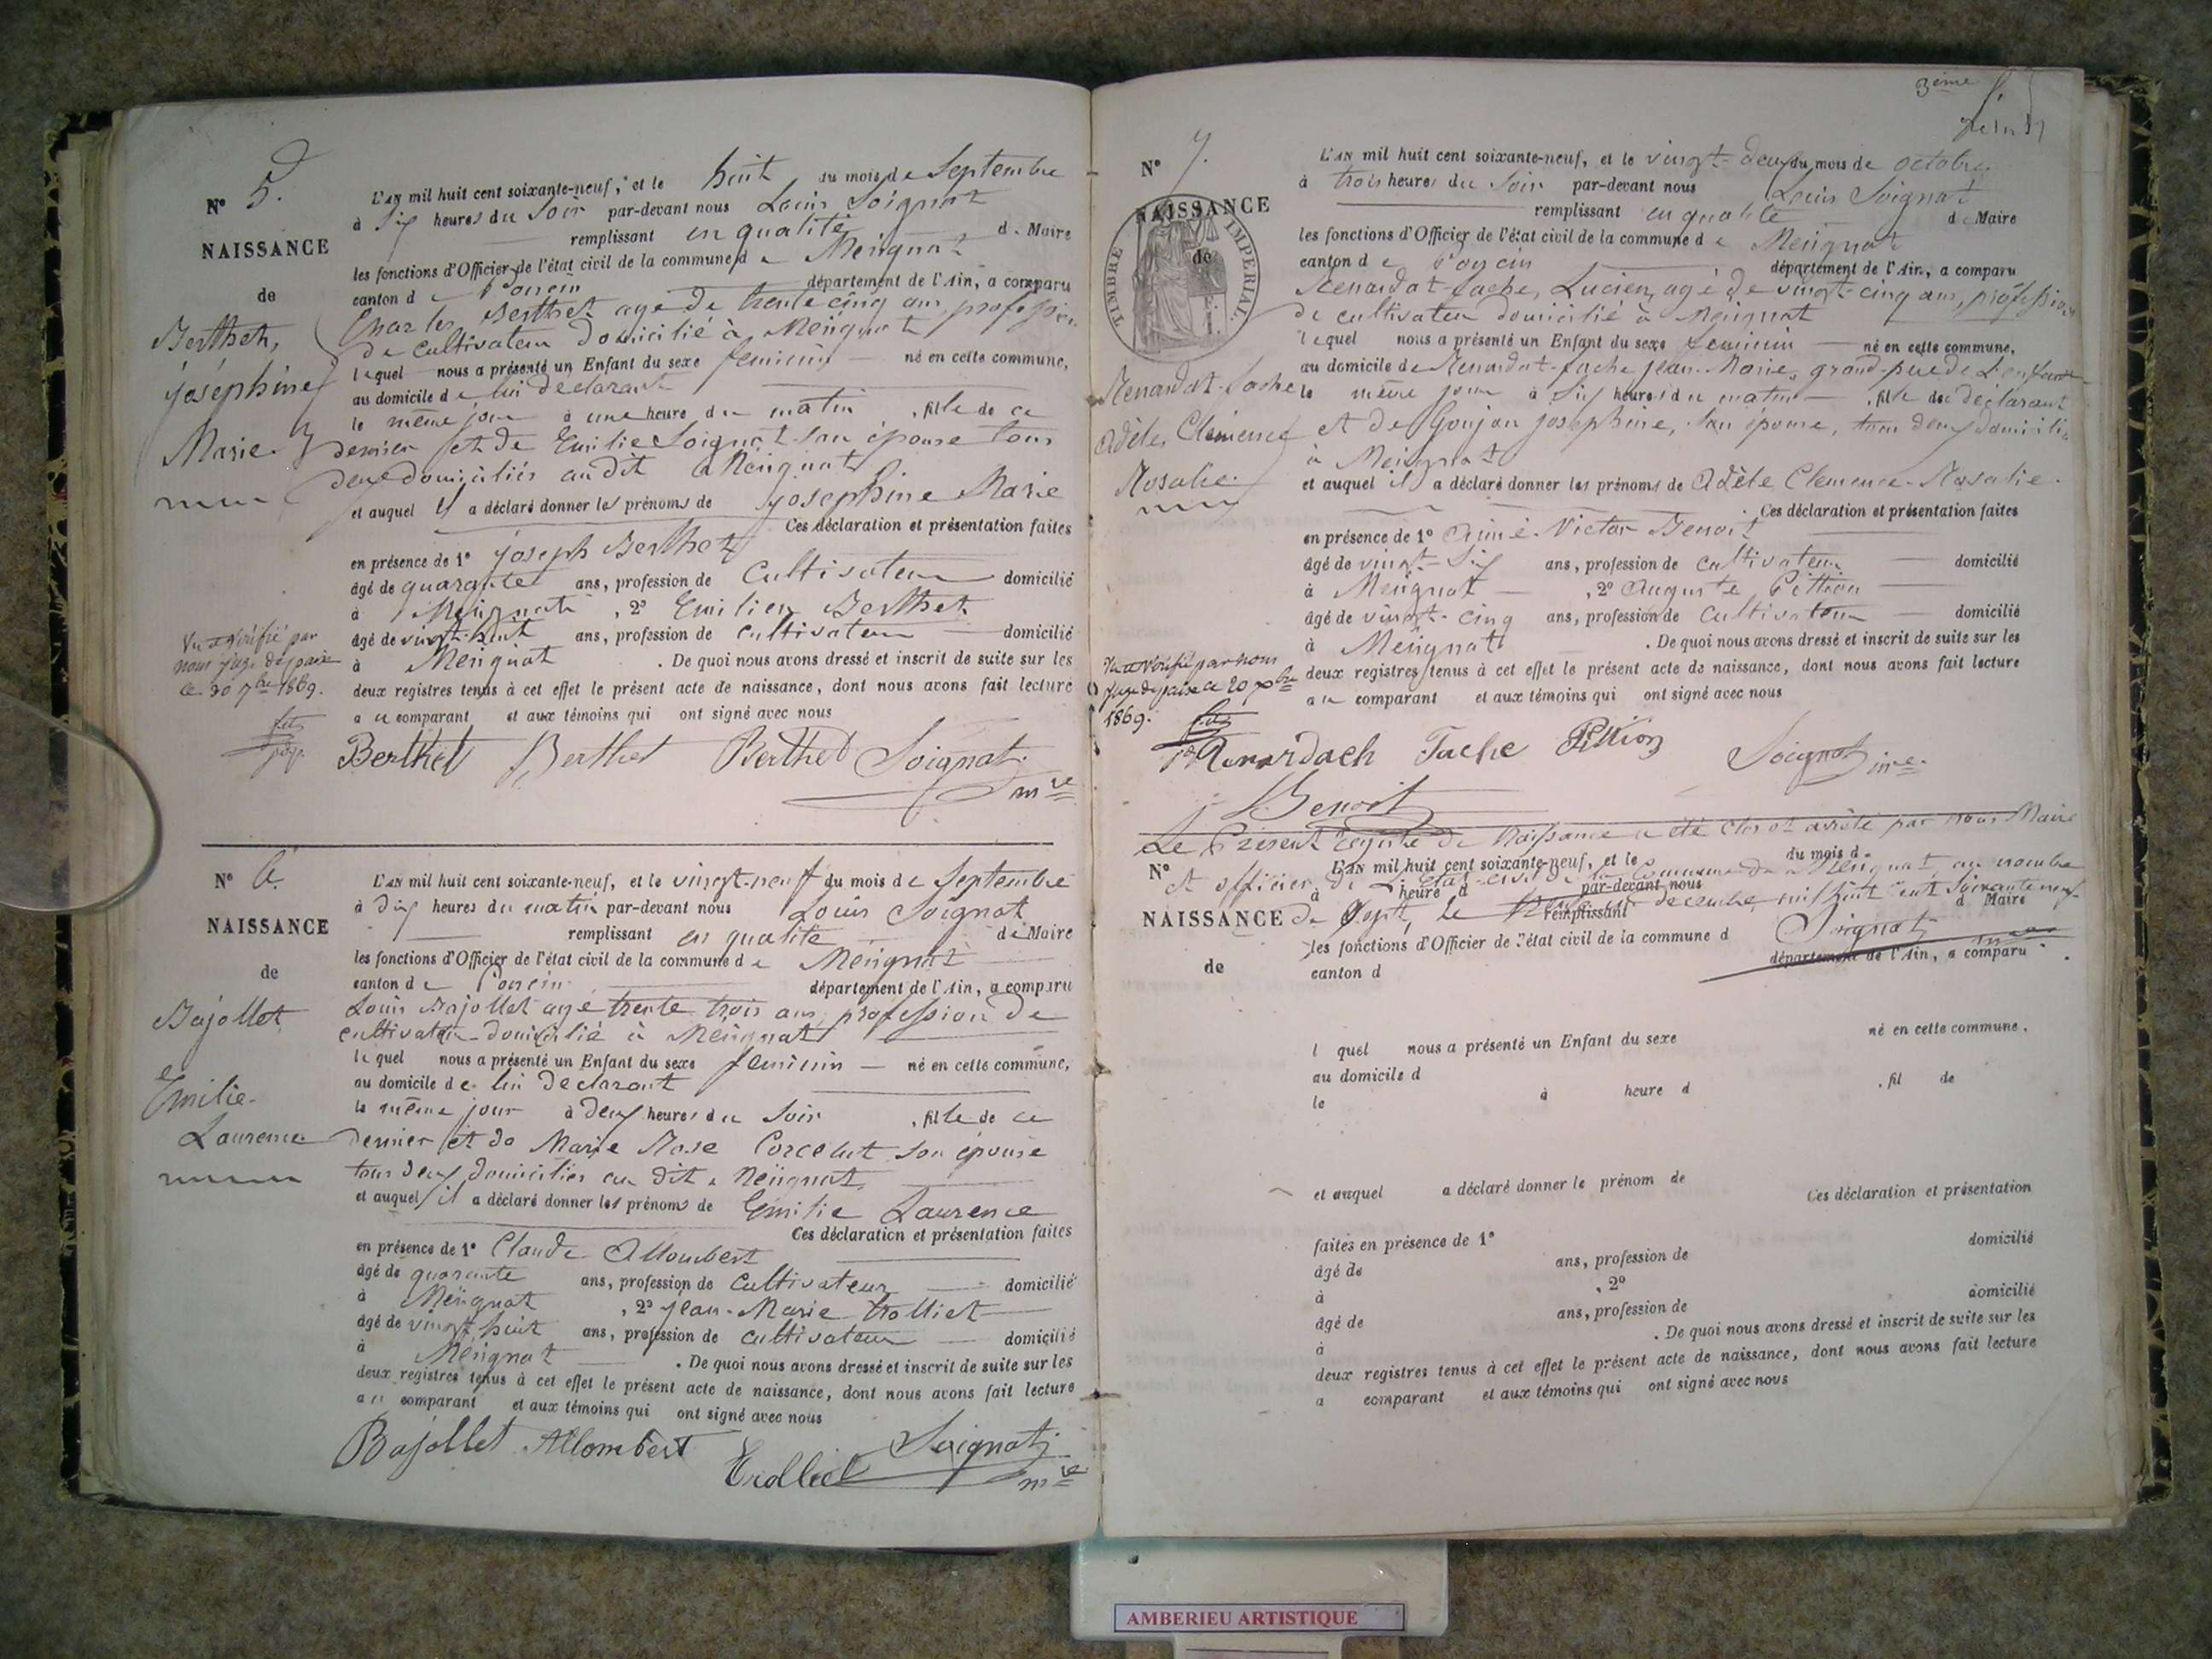 N° 5.
NAISSANCE
de
Berthet,
joséphine
Marie.
L'AN mil huit cent soixante-neuf, et le huit du mois de Septembre
à Six heures du Soir par-devant nous Louis Soignat
remplissant en qualité de Maire
les fonctions d'Officier de l'état civil de la commune de Mérignat
canton de Poncin département de l'Ain, a comparu
Charles Berthet agé de trente cinq ans, profession
de cultivateur domicilié à Mérignat
lequel nous a présenté un Enfant du sexe feminin né en cette commune,
au domicile de lui déclarant
le même jour à une heure du matin , fille de ce
dernier et de Emilie Soignat son épouse tous
deux domiciliés audit Mérignat
et auquel il a déclaré donner les prénoms de josephine Marie
Ces déclaration et présentation faites
en présence de 1° joseph Berthet
âgé de quarante ans, profession de Cultivateur domicilié
à Mérignat , 2° Emilien Berthet
âgé de vingt-huit ans, profession de cultivateur domicilié
à Mérignat . De quoi nous avons dressé et inscrit de suite sur les
deux registres tenus à cet effet le présent acte de naissance, dont nous avons fait lecture
au comparant et aux témoins qui ont signé avec nous
Vu et vérifié par
nous juge de paix
le 30 7bre 1869.
Berthet Berthet Berthet Soignat
mre
N° 6.
NAISSANCE
de
Bajollet
Emilie
Laurence
L'AN mil huit cent soixante-neuf, et le vingt-neuf du mois de Septembre
à dix heures du matin par-devant nous Louis Soignat
remplissant en qualité de Maire
les fonctions d'Officier de l'état civil de la commune de Mérignat
canton de Poncin département de l'Ain, a comparu
Louis Bajollet agé trente trois ans, profession de
cultivateur domicilié à Mérignat
lequel nous a présenté un Enfant du sexe feminin né en cette commune,
au domicile de lui declarant
le même jour à deux heures du Soir , fille de ce
dernier et de Marie Rose Corcelut son épouse
tous deux domiciliés au dit Mérignat
et auquel il a déclaré donner les prénoms de Emilie Laurence
Ces déclaration et présentation faites
en présence de 1° Claude Allombert
âgé de quarante ans, profession de Cultivateur domicilié
à Mérignat , 2° jean-Marie trolliet
âgé de vingt huit ans, profession de cultivateur domicilié
à Mérignat . De quoi nous avons dressé et inscrit de suite sur les
deux registres tenus à cet effet le présent acte de naissance, dont nous avons fait lecture
au comparant et aux témoins qui ont signé avec nous
Bajollet Allombert Trolliet Soignat
mre
3ème
N° 7.
NAISSANCE
de
TIMBRE IMPERIAL
Renardat-fache
Adèle Clémence
Rosalie.
L'AN mil huit cent soixante-neuf, et le vingt-deux du mois de octobre
à trois heures du Soir par-devant nous Louis Soignat
remplissant en qualité de Maire
les fonctions d'Officier de l'état civil de la commune de Mérignat
canton de Poncin département de l'Ain, a comparu
Renardat-fache, Lucien, agé de vingt-cinq ans, profession
de cultivateur domicilié à Mérignat
lequel nous a présenté un Enfant du sexe feminin né en cette commune,
au domicile de Renardat-fache jean-Marie, grand-père de l'enfant
le même jour à Six heures du matin , fille du déclarant
et de Goujon josephine, son épouse, tous deux domiciliés
à Mérignat
et auquel il a déclaré donner les prénoms de Adèle Clemence-Rosalie.
Ces déclaration et présentation faites
en présence de 1° Aimé-Victor Benoit
âgé de vingt-Six ans, profession de cultivateur domicilié
à Mérignat , 2° Auguste Pittion
âgé de vingt-cinq ans, profession de cultivateur domicilié
à Mérignat . De quoi nous avons dressé et inscrit de suite sur les
deux registres tenus à cet effet le présent acte de naissance, dont nous avons fait lecture
au comparant et aux témoins qui ont signé avec nous
Vu et vérifié par nous
juge de paix ce 20
1869.
Renardach Fache Pittion Soignat mre
Benoit
Le Présent registre de Naissance a été clos et arrêté par nous Maire
N° L'AN mil huit cent soixante-neuf, et le du mois d
et officier de l'Etat-civil de la Commune de Mérignat, au nombre
à heure d par-devant nous
NAISSANCE de Sept, le decembre mil huit cent soixante neuf
remplissant d Maire
les fonctions d'Officier de l'état civil de la commune d Soignat
de canton d département de l'Ain, a comparu
l quel nous a présenté un Enfant du sexe né en cette commune,
au domicile d
le à heure d , fil de
et auquel a déclaré donner le prénom de
Ces déclaration et présentation
faites en présence de 1°
âgé de ans, profession de domicilié
à , 2°
âgé de ans, profession de domicilié
à . De quoi nous avons dressé et inscrit de suite sur les
deux registres tenus à cet effet le présent acte de naissance, dont nous avons fait lecture
a comparant et aux témoins qui ont signé avec nous
AMBERIEU ARTISTIQUE